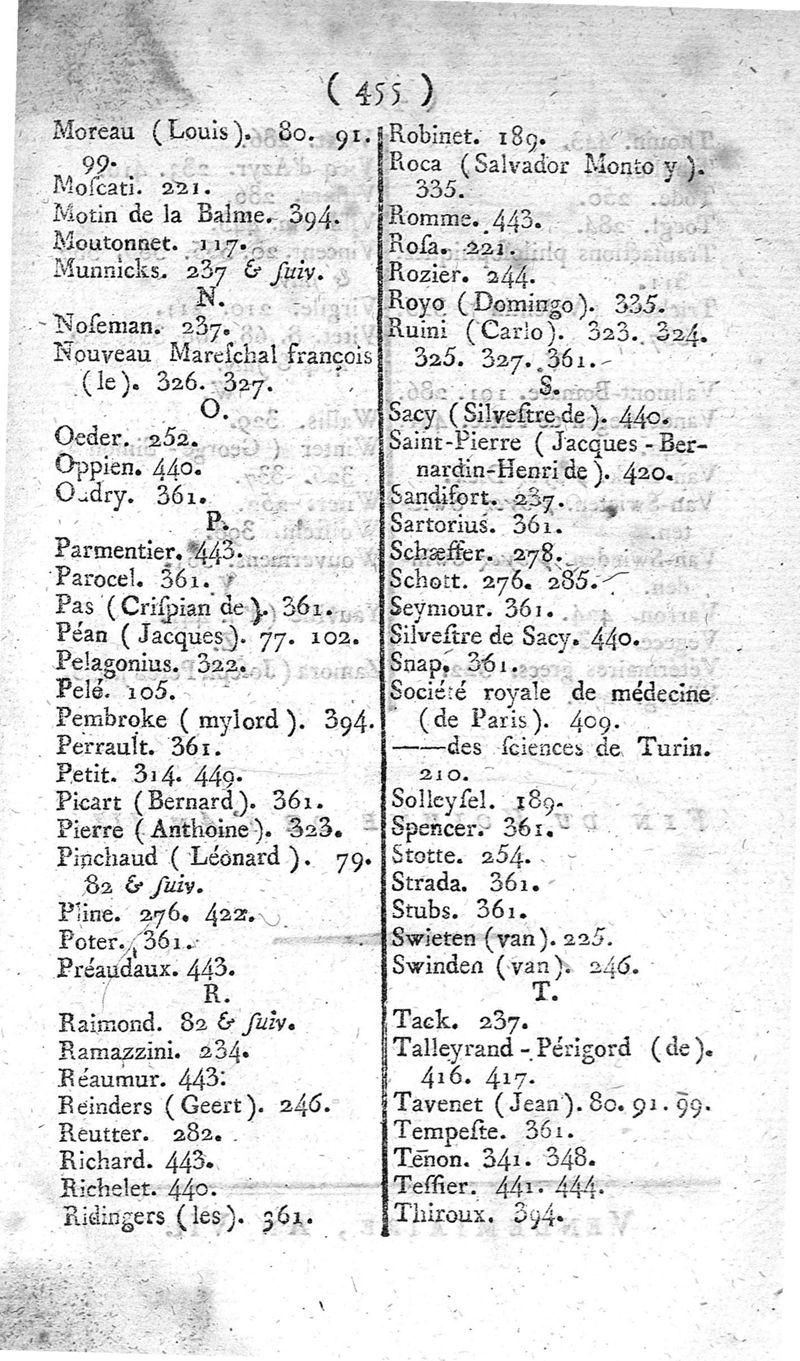 ( 455 )
Moreau (Louis). 80. 91.
99.
Moſcati. 221.
Motin de la Balme. 394.
Moutonnet. 117.
Munnicks. 237 & ſuiv.
N.
Noſeman. 237.
Nouveau Mareſchal françois
(le). 326. 327.
O.
Oeder. 252.
Oppien. 440.
Oudry. 361.
P.
Parmentier. 443.
Parocel. 361.
Pas (Criſpian de). 361.
Péan (Jacques). 77. 102.
Pelagonius. 322.
Pelé. 105.
Pembroke (mylord). 394.
Perrault. 361.
Petit. 314. 449.
Picart (Bernard). 361.
Pierre (Anthoine). 323.
Pinchaud (Léonard). 79.
82 & ſuiv.
Pline. 276. 422.
Poter. 361.
Préaudaux. 443.
R.
Raimond. 82 & ſuiv.
Ramazzini. 234.
Réaumur. 443.
Reinders (Geert). 246.
Reutter. 282.
Richard. 443.
Richelet. 440.
Ridingers (les). 361.
Robinet. 189.
Roca (Salvador Monto y).
335.
Romme. 443.
Roſa. 221.
Rozier. 244.
Royo (Domingo). 335.
Ruini (Carlo). 323. 324.
325. 327. 361.
S.
Sacy (Silveſtre de). 440.
Saint-Pierre (Jacques-Ber-
nardin-Henri de). 420.
Sandifort. 237.
Sartorius. 361.
Schæffer. 278.
Schott. 276. 285.
Seymour. 361.
Silveſtre de Sacy. 440.
Snap. 361.
Société royale de médecine
(de Paris). 409.
——des ſciences de Turin.
210.
Solleyſel. 189.
Spencer. 361.
Stotte. 254.
Strada. 361.
Stubs. 361.
Swieten (van). 225.
Swinden (van). 246.
T.
Tack. 237.
Talleyrand-Périgord (de).
416. 417.
Tavenet (Jean). 80. 91. 99.
Tempeſte. 361.
Tenon. 341. 348.
Teſſier. 441. 444.
Thiroux. 394.